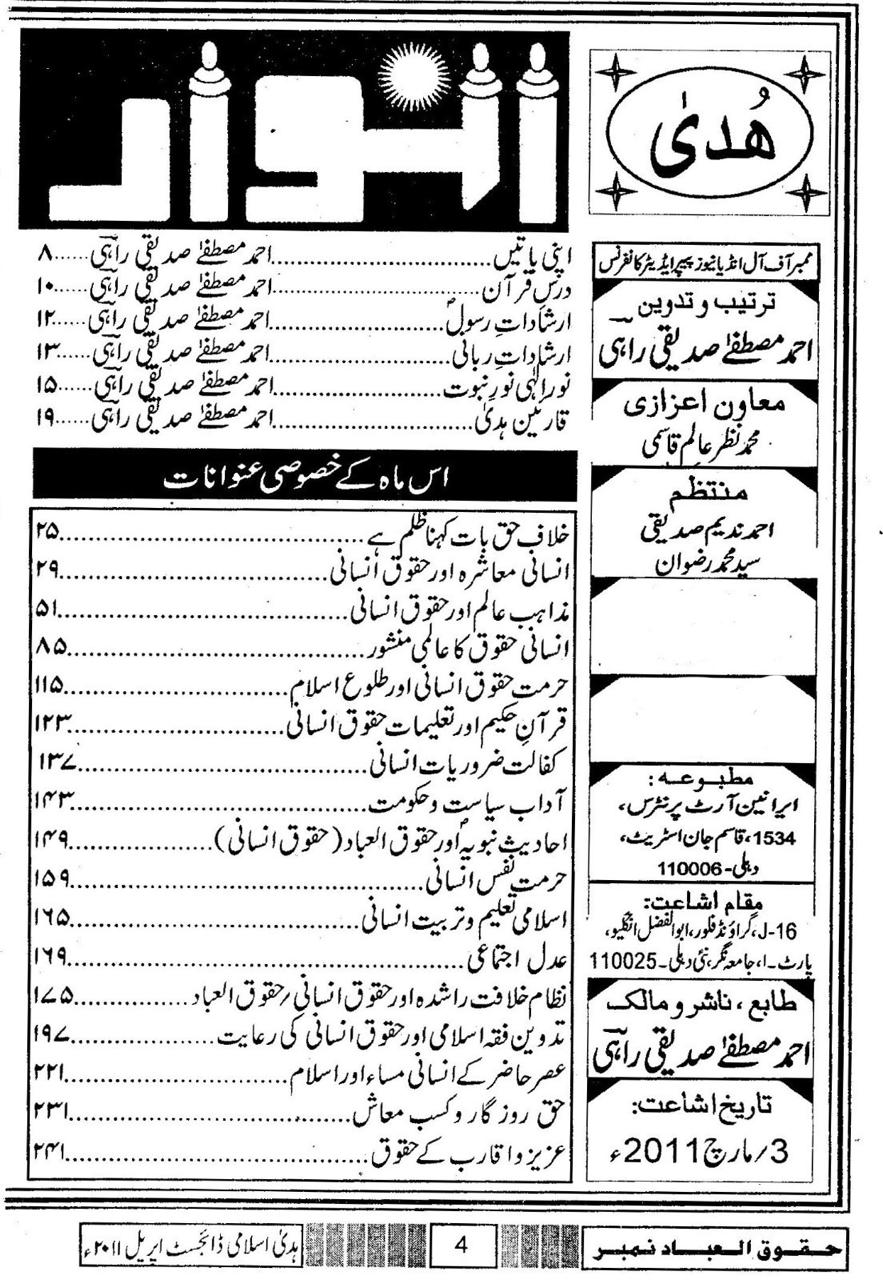 ھُدیٰ
انوار
ممبر آف آل انڈیا نیوز پیپر ایڈیٹر کانفرنس
ترتیب و تدوین
احمد مصطفےٰ صدیقی راہی
معاون اعزازی
محمد نظر عالم قاسمی
منتظم
احمد ندیم صدیقی
سید محمد رضوان
مطبوعہ:
ایرانین آرٹ پرنٹرس،
1534، قاسم جان اسٹریٹ،
دہلی-110006
مقام اشاعت:
J-16، گراؤنڈ فلور، ابوالفضل انکلیو،
پارٹ-ا، جامعہ نگر، نئی دہلی-110025
طابع، ناشر و مالک
احمد مصطفےٰ صدیقی راہی
تاریخ اشاعت:
3/مارچ 2011ء
اپنی باتیں احمد مصطفےٰ صدیقی راہی ۸
درسِ قرآن احمد مصطفےٰ صدیقی راہی ۱۰
ارشاداتِ رسولؐ احمد مصطفےٰ صدیقی راہی ۱۲
ارشاداتِ ربانی احمد مصطفےٰ صدیقی راہی ۱۳
نورِ الٰہی نورِ نبوت احمد مصطفےٰ صدیقی راہی ۱۵
قارئین ہدیٰ احمد مصطفےٰ صدیقی راہی ۱۹
اس ماہ کے خصوصی عنوانات
خلاف حق بات کہنا ظلم ہے ۲۵
انسانی معاشرہ اور حقوق انسانی ۲۹
مذاہب عالم اور حقوق انسانی ۵۱
انسانی حقوق کا عالمی منشور ۸۵
حرمت حقوق انسانی اور طلوع اسلام ۱۱۵
قرآنِ حکیم اور تعلیمات حقوق انسانی ۱۲۳
کفالت ضروریات انسانی ۱۳۷
آداب سیاست و حکومت ۱۴۳
احادیث نبویہؐ اور حقوق العباد (حقوق انسانی) ۱۴۹
حرمت نفس انسانی ۱۵۹
اسلامی تعلیم و تربیت انسانی ۱۶۵
عدل اجتماعی ۱۶۹
نظام خلافت راشدہ اور حقوق انسانی/حقوق العباد ۱۷۵
تدوین فقہ اسلامی اور حقوق انسانی کی رعایت ۱۹۷
عصر حاضر کے انسانی مساء اور اسلام ۲۲۱
حق روزگار و کسب معاش ۲۳۱
عزیز و اقارب کے حقوق ۲۴۱
حقوق العباد نمبر
4
ہدیٰ اسلامی ڈائجسٹ اپریل ۲۰۱۱ء